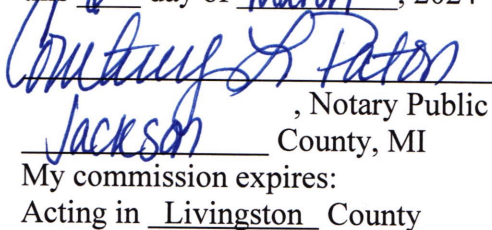 day of March, 2024
Courtney L Paton
, Notary Public
Jackson County, MI
My commission expires:
Acting in Livingston County